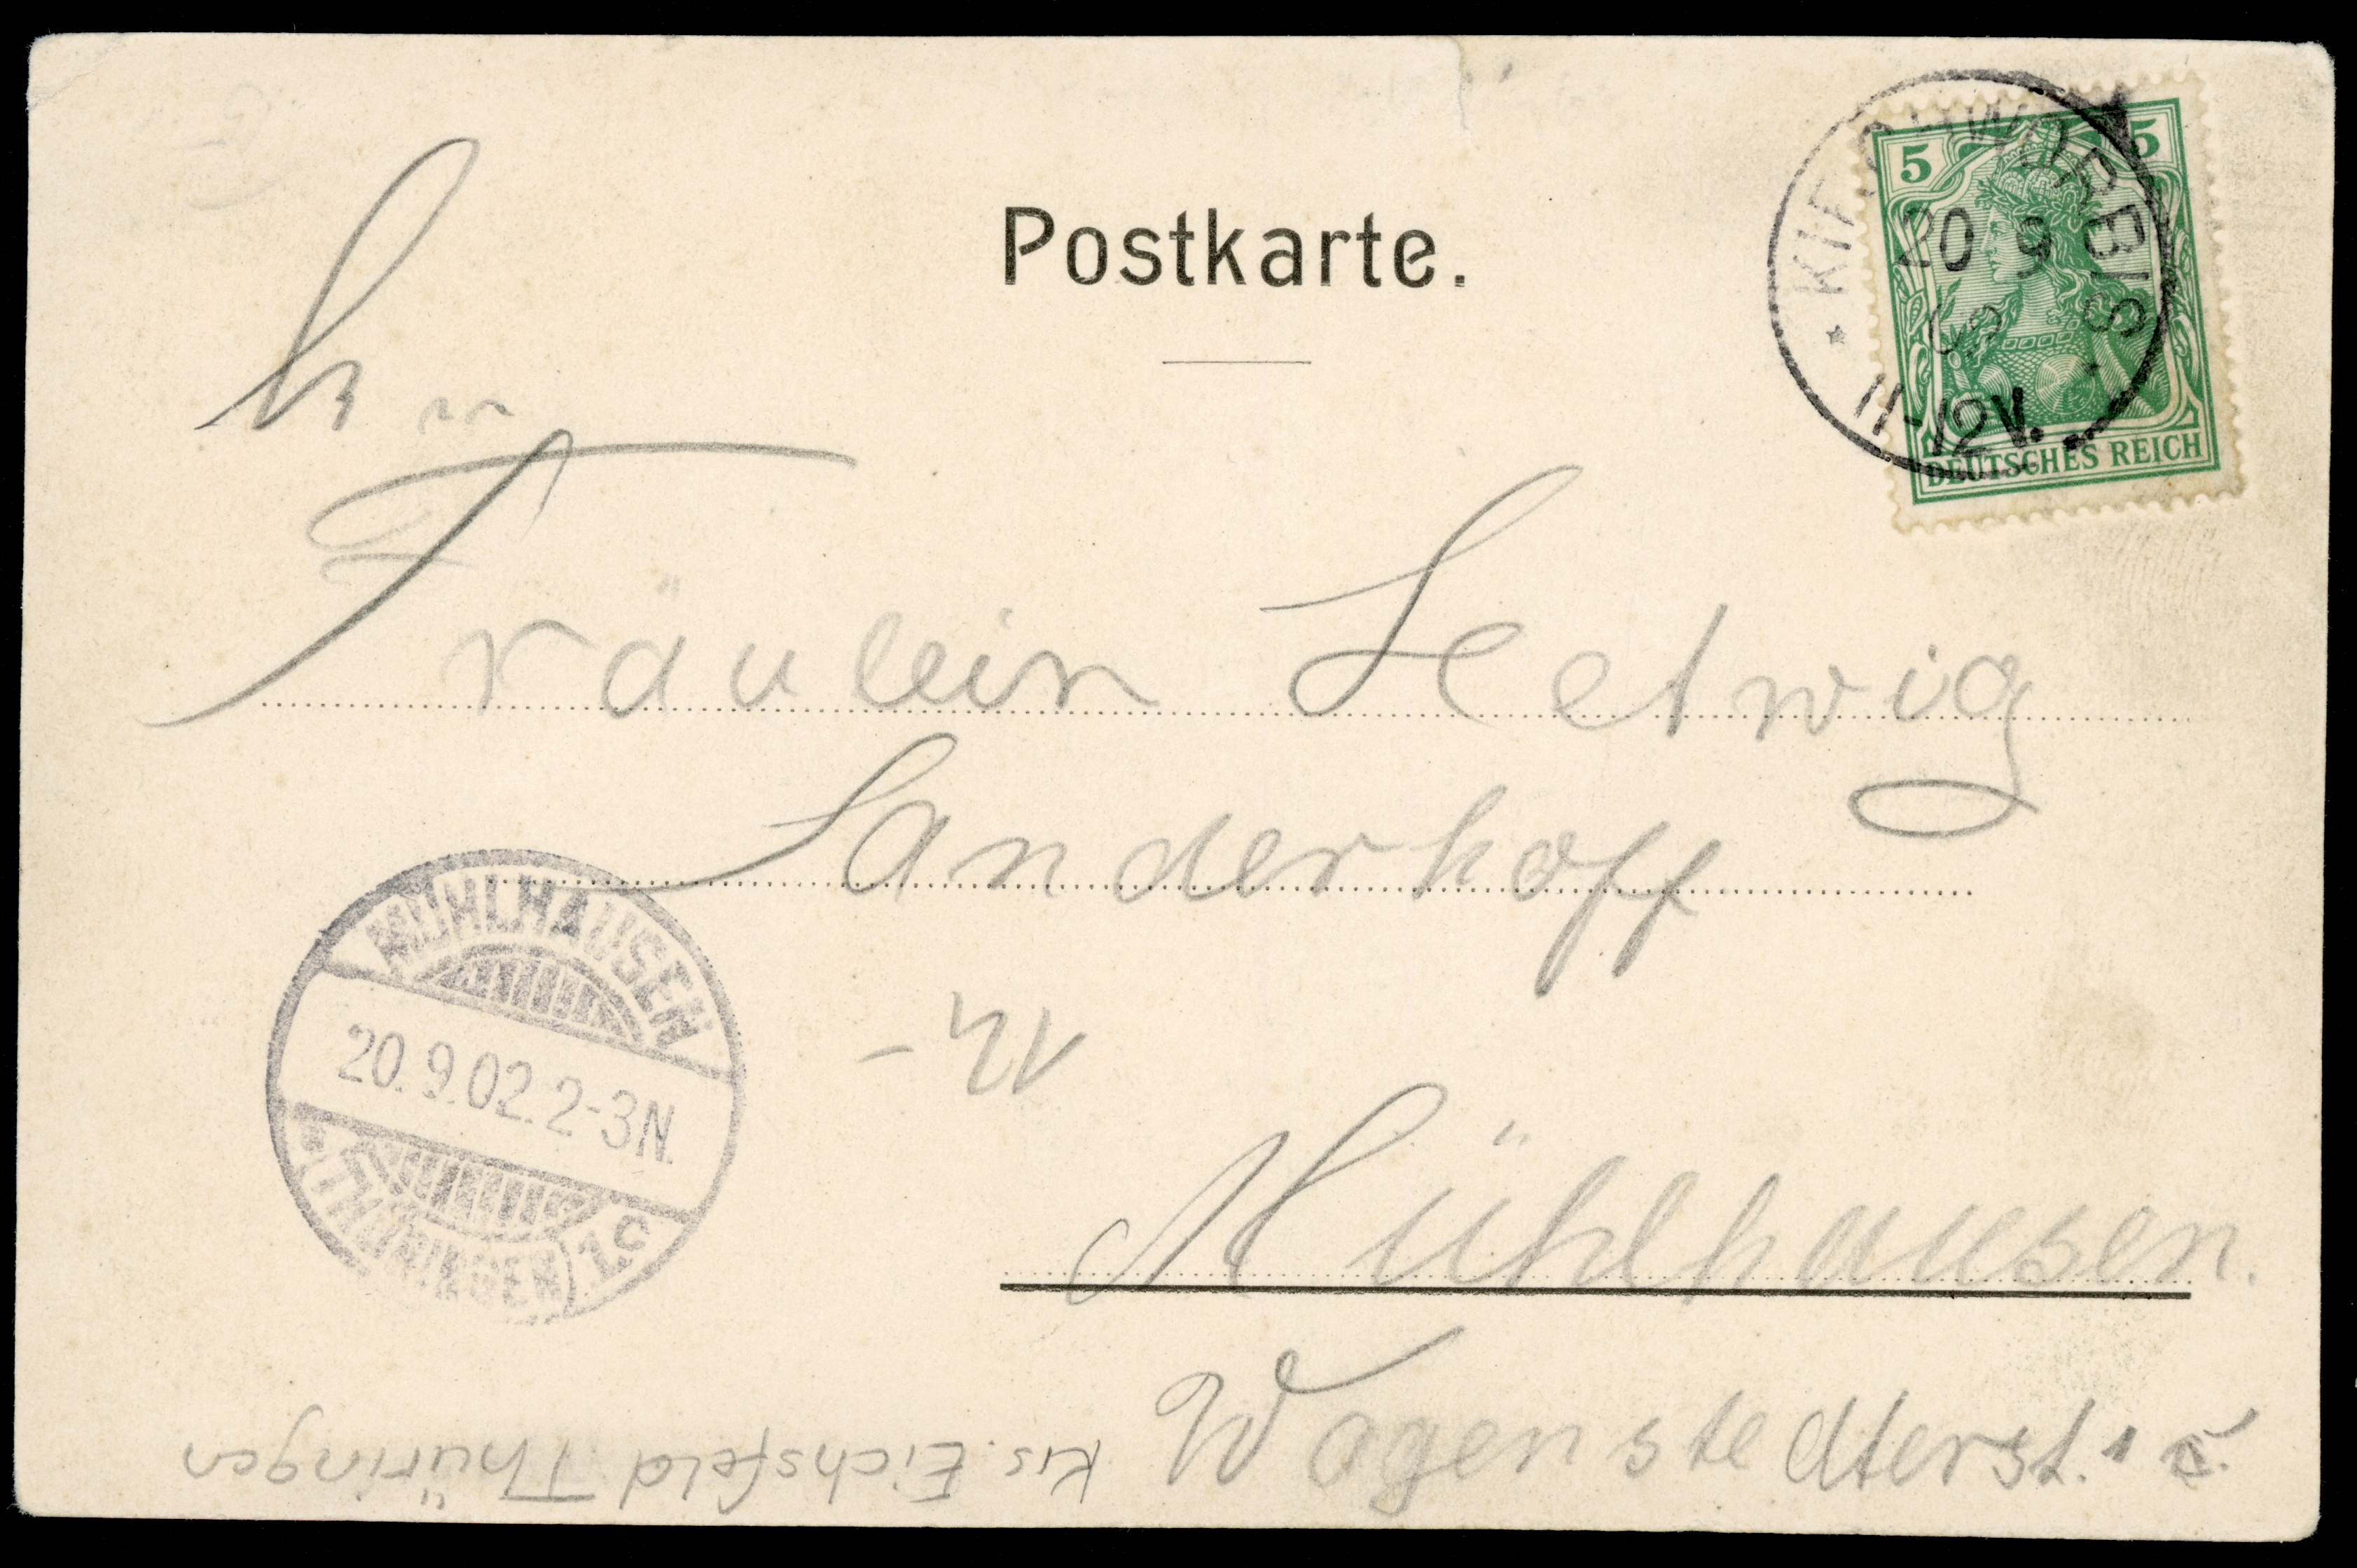 Postkarte.
5 5
DEUTSCHES REICH
20 9
02
11-12V.
Fräulein Hetwig
Sanderhoff
Mühlhausen.
Wagenstedterst. 1
MÜHLHAUSEN
20.9.02.2-3N.
(THÜRINGEN) 1.c
Krs. Eichsfeld Thüringen